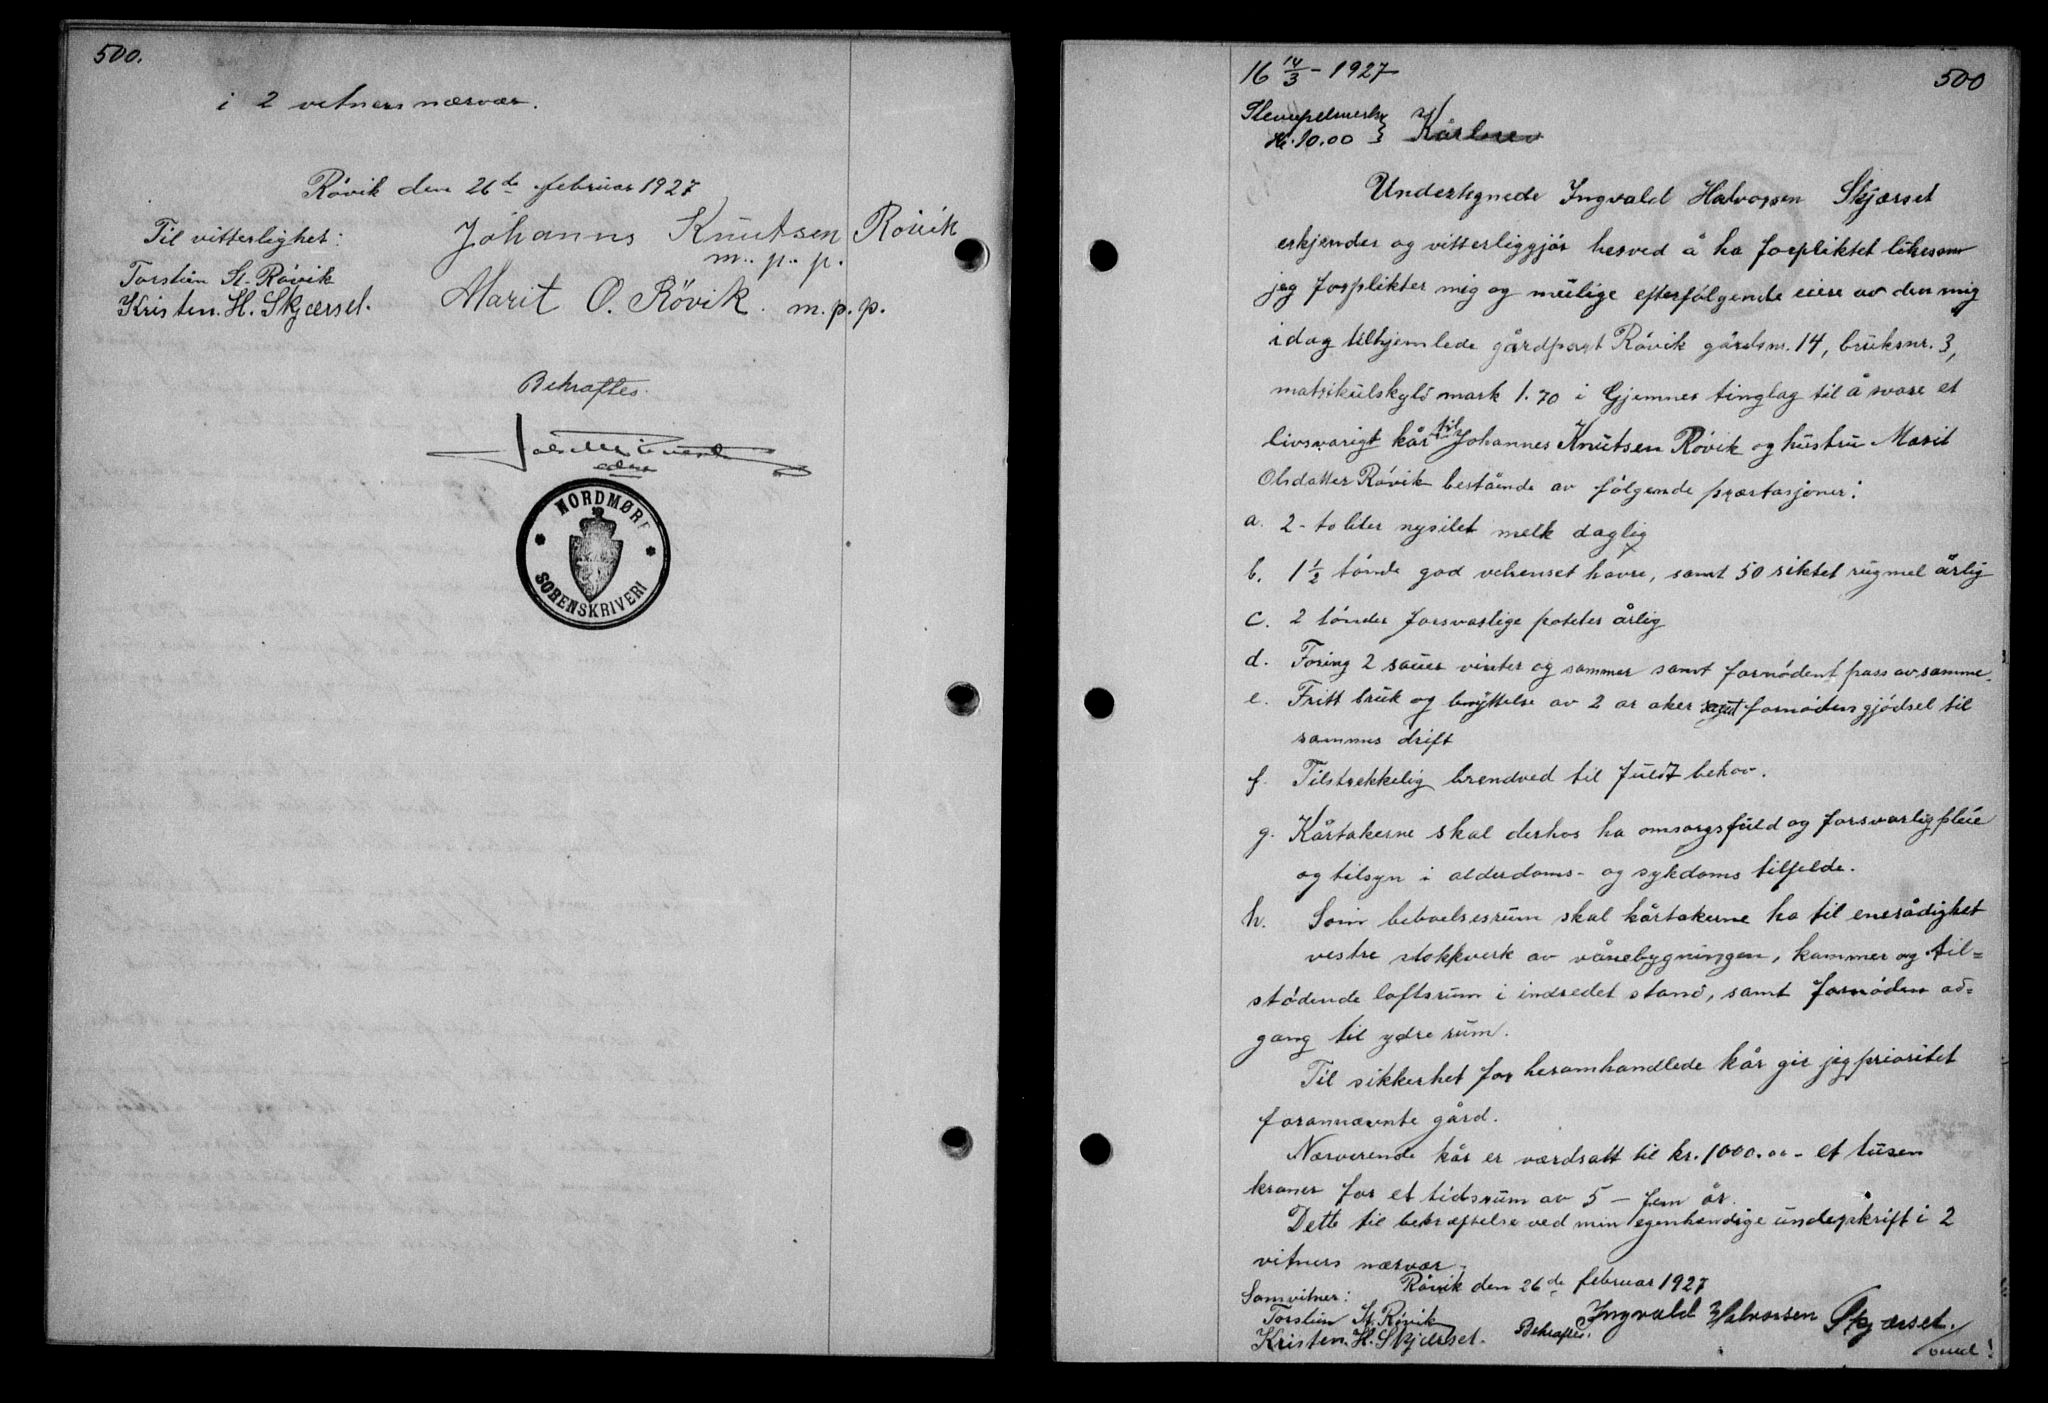 500.
i 2 vitners nærvær.
Røvik den 26de februar 1927
Til vitterlighet:
Johanns Knutsen Røvik
m. p. p.
Torstein St. Røvik
Kristen. H. Skjærset.
Marit O. Røvik. m. p. p.
Bekræftes.
NORDMØRE
SORENSKRIVERI
16 14/3 - 1927
500
Stempelmerke
Kr. 10.00
Kårbrev
Undertegnede Ingvald Halvorsen Skjærset
erkjender og vitterliggjør herved å ha forpliktet likesom
jeg forplikter mig og mulige efterfølgende eiere av den mig
idag tilhjemlede gårdpart Røvik gårdsnr. 14, bruksnr. 3,
matrikulskyld mark 1.70 i Gjemnes tinglag til å svare et
livsvarigt kår til Johannes Knutsen Røvik og hustru Marit
Olsdatter Røvik bestående av følgende præstasjoner:
a. 2 - to liter nysilet melk daglig
b. 1 1/2 tønde god velrenset havre, samt 50 siktet rugmel årlig
c. 2 tønder forsvarlige poteter årlig
d. Foring 2 sauer vinter og sommer samt fornødent pass av samme.
e. Fritt bruk og benyttelse av 2 ar aker samt fornøden gjødsel til
sammes drift
f. Tilstrekkelig brendved til fuldt behov.
g. Kårtakerne skal derhos ha omsorgsfuld og forsvarlig pleie
og tilsyn i alderdoms- og sykdoms tilfelde.
h. Som beboelsesrum skal kårtakerne ha til enerådighet
vestre stokkverk av vånebygningen, kammer og til=
stødende loftsrum i indredet stand, samt fornøden ad=
gang til ydre rum.
Til sikkerhet for heromhandlede kår gir jeg prioritet
forannævnte gård.
Nærværende kår er værdsatt til kr. 1000.00 - et tusen
kroner for et tidsrum av 5 - fem år.
Dette til bekræftelse ved min egenhændige underskrift i 2
vitners nærvær.
Røvik den 26de februar 1927
Somvitner:
Torstein St. Røvik
Kristen. H. Skjærset.
Bekræftes.
Ingvald Halvorsen Skjærset.
vend!